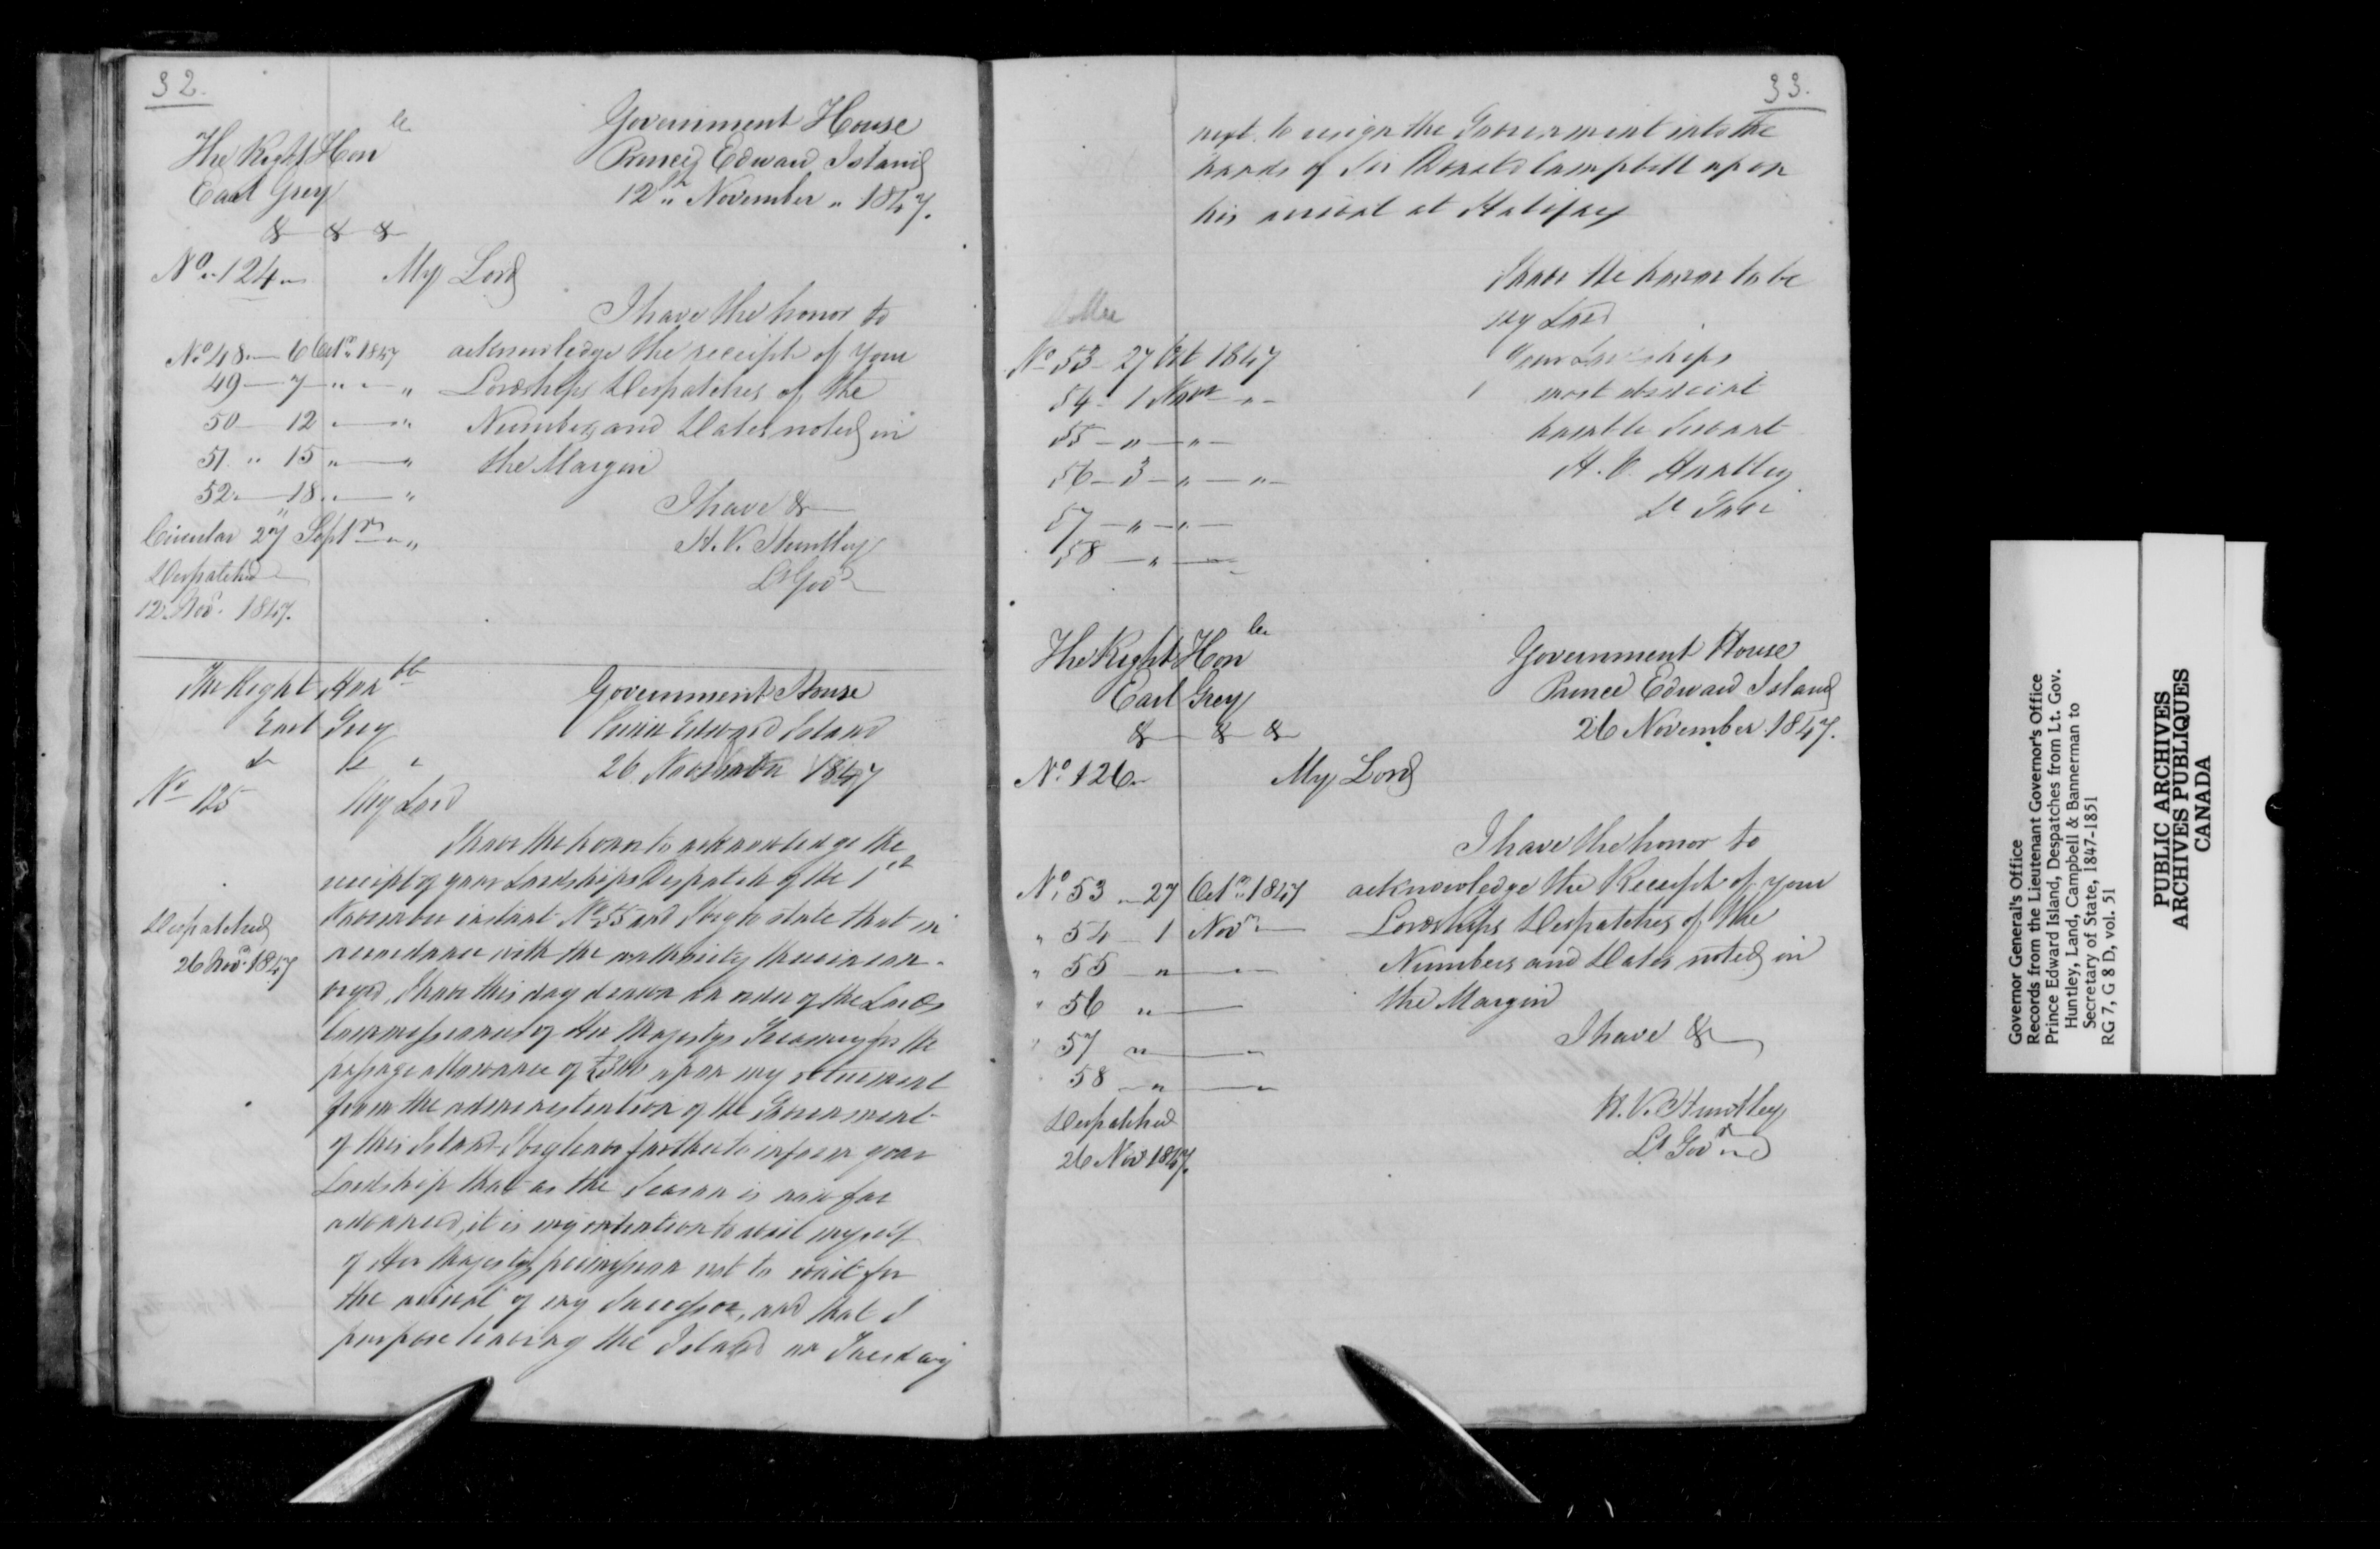 32.
The Right Honle
Earl Grey
& & &
Government House
Prince Edward Island
12th November 1847.
No. 124
My Lord
I have the honor to
acknowledge the receipt of your
Lordships Despatches of the
Numbers and Dates noted in
the Margin
I have &
H. V. Huntley
Lt Govr
No 48 — 6 Octr 1847
49 — 7 " — "
50 — 12 " — "
51 " 15 " — "
52 — 18 " — "
Circular 27 Septr — "
Despatched
12 Novr. 1847.
The Right Honble
Earl Grey
& & "
Government House
Prince Edward Island
26 November 1847
No 125
My Lord
I have the honor to acknowledge the
receipt of your Lordships Despatch of the 1st
November instant No 55 and I beg to state that in
accordance with the authority therein con-
veyed, I have this day drawn on order of the Lords
Commissioners of Her Majestys Treasury for the
passage allowance of £300 upon my retirement
from the administration of the Government
of this Island. I beg leave further to inform your
Lordship that as the Season is now far
advanced, it is my intention to avail myself
of Her Majestys permission not to wait for
the arrival of my Successor, and that I
purpose leaving the Island on Tuesday
Despatched
26 Novr 1847
33.
next to resign the Government into the
hands of Sir Donald Campbell upon
his arrival at Halifax
I have the honor to be
My Lord
Your Lordships
most obedient
humble Servant
H. V. Huntley
Lt Govr
No 53 — 27 Oct 1847
54 — 1 Novr " —
55 — " — " —
56 — 3 — " — " —
57 — " — " —
58 — " —
The Right Honle
Earl Grey
& & &
Government House
Prince Edward Island
26 November 1847.
No. 126
My Lord
I have the honor to
acknowledge the Receipt of your
Lordships Despatches of the
Numbers and Dates noted in
the Margin
I have &
H. V. Huntley
Lt Govr
No. 53 — 27 Octr 1847
" 54 — 1 Novr —
" 55 — " — " —
" 56 " —
" 57 " — "
58 — " — "
Despatched
26 Nov 1847.
Governor General's Office
Records from the Lieutenant Governor's Office
Prince Edward Island, Despatches from Lt. Gov.
Huntley, Land, Campbell & Bannerman to
Secretary of State, 1847-1851
RG 7, G 8 D, vol. 51
PUBLIC ARCHIVES
ARCHIVES PUBLIQUES
CANADA